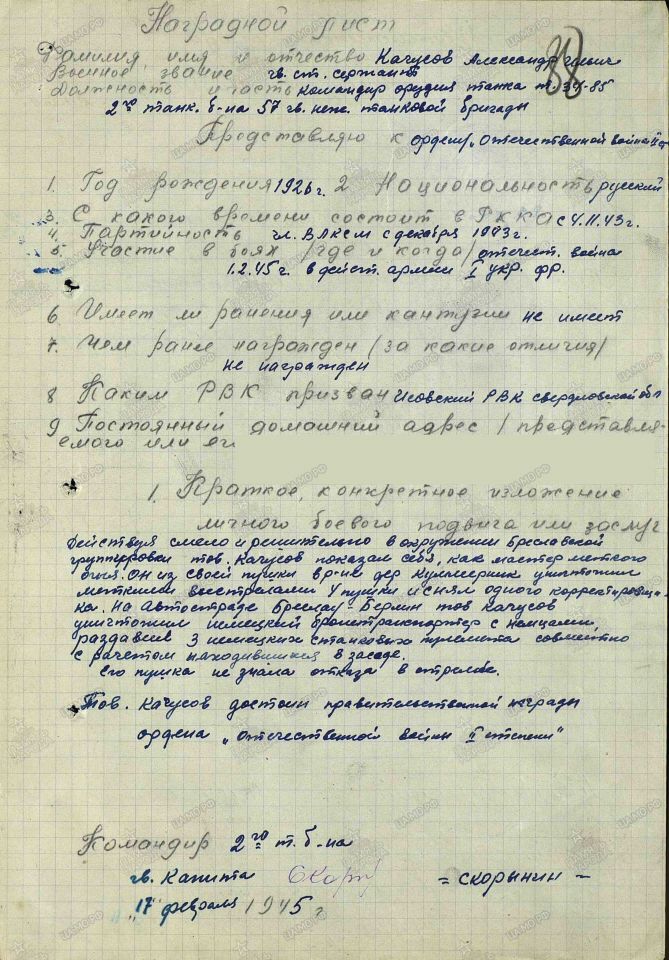 Наградной лист
Фамилия, имя и отчество Качусов Александр Ильич
Военное звание гв. ст. сержант
Должность и часть командир орудия танка т. 34-85
2го танк. б-на 57 гв. танковой бригады
Представляю к ордену „Отечественной войны II ст
1. Год рождения 1926 г. 2 Национальность русский
3. С какого времени состоит в РККА с 4.11.43 г.
4. Партийность чл. ВЛКСМ с декабря 1943 г.
5. Участие в боях /где и когда/ отечест. война
1.2.45 г. в дейст. армии I укр. фр.
6. Имеет ли ранения или кантузии не имеет
7. Чем ране награжден /за какие отличия/
не награжден
8 Каким РВК призван Исовский РВК свердловской обл
9 Постоянный домашний адрес /представля-
емого или ег
1. Краткое, конкретное изложение
личного боевого подвига или заслуг
Действуя смело и решительно в окружении Бреславской
группировки тов. Качусов показал себя, как мастер меткого
огня. Он из своей пушки в р-не дер уничтожил
меткими выстрелами 4 пушки и снял одного корректировщи-
ка. На Автостраде Бреслау-Берлин тов Качусов
уничтожил немецкий бронетранспортер с немцами,
раздавил 3 немецких станковых пулемета совместно
с расчетом находившихся в засаде.
Его пушка не знала отказа в стрельбе.
Тов. Качусов достоин правительственной награды
ордена „Отечественной войны II степени"
Командир 2го т. б-на
гв. Капитан = Скорынин -
„17" февраля 1945 г